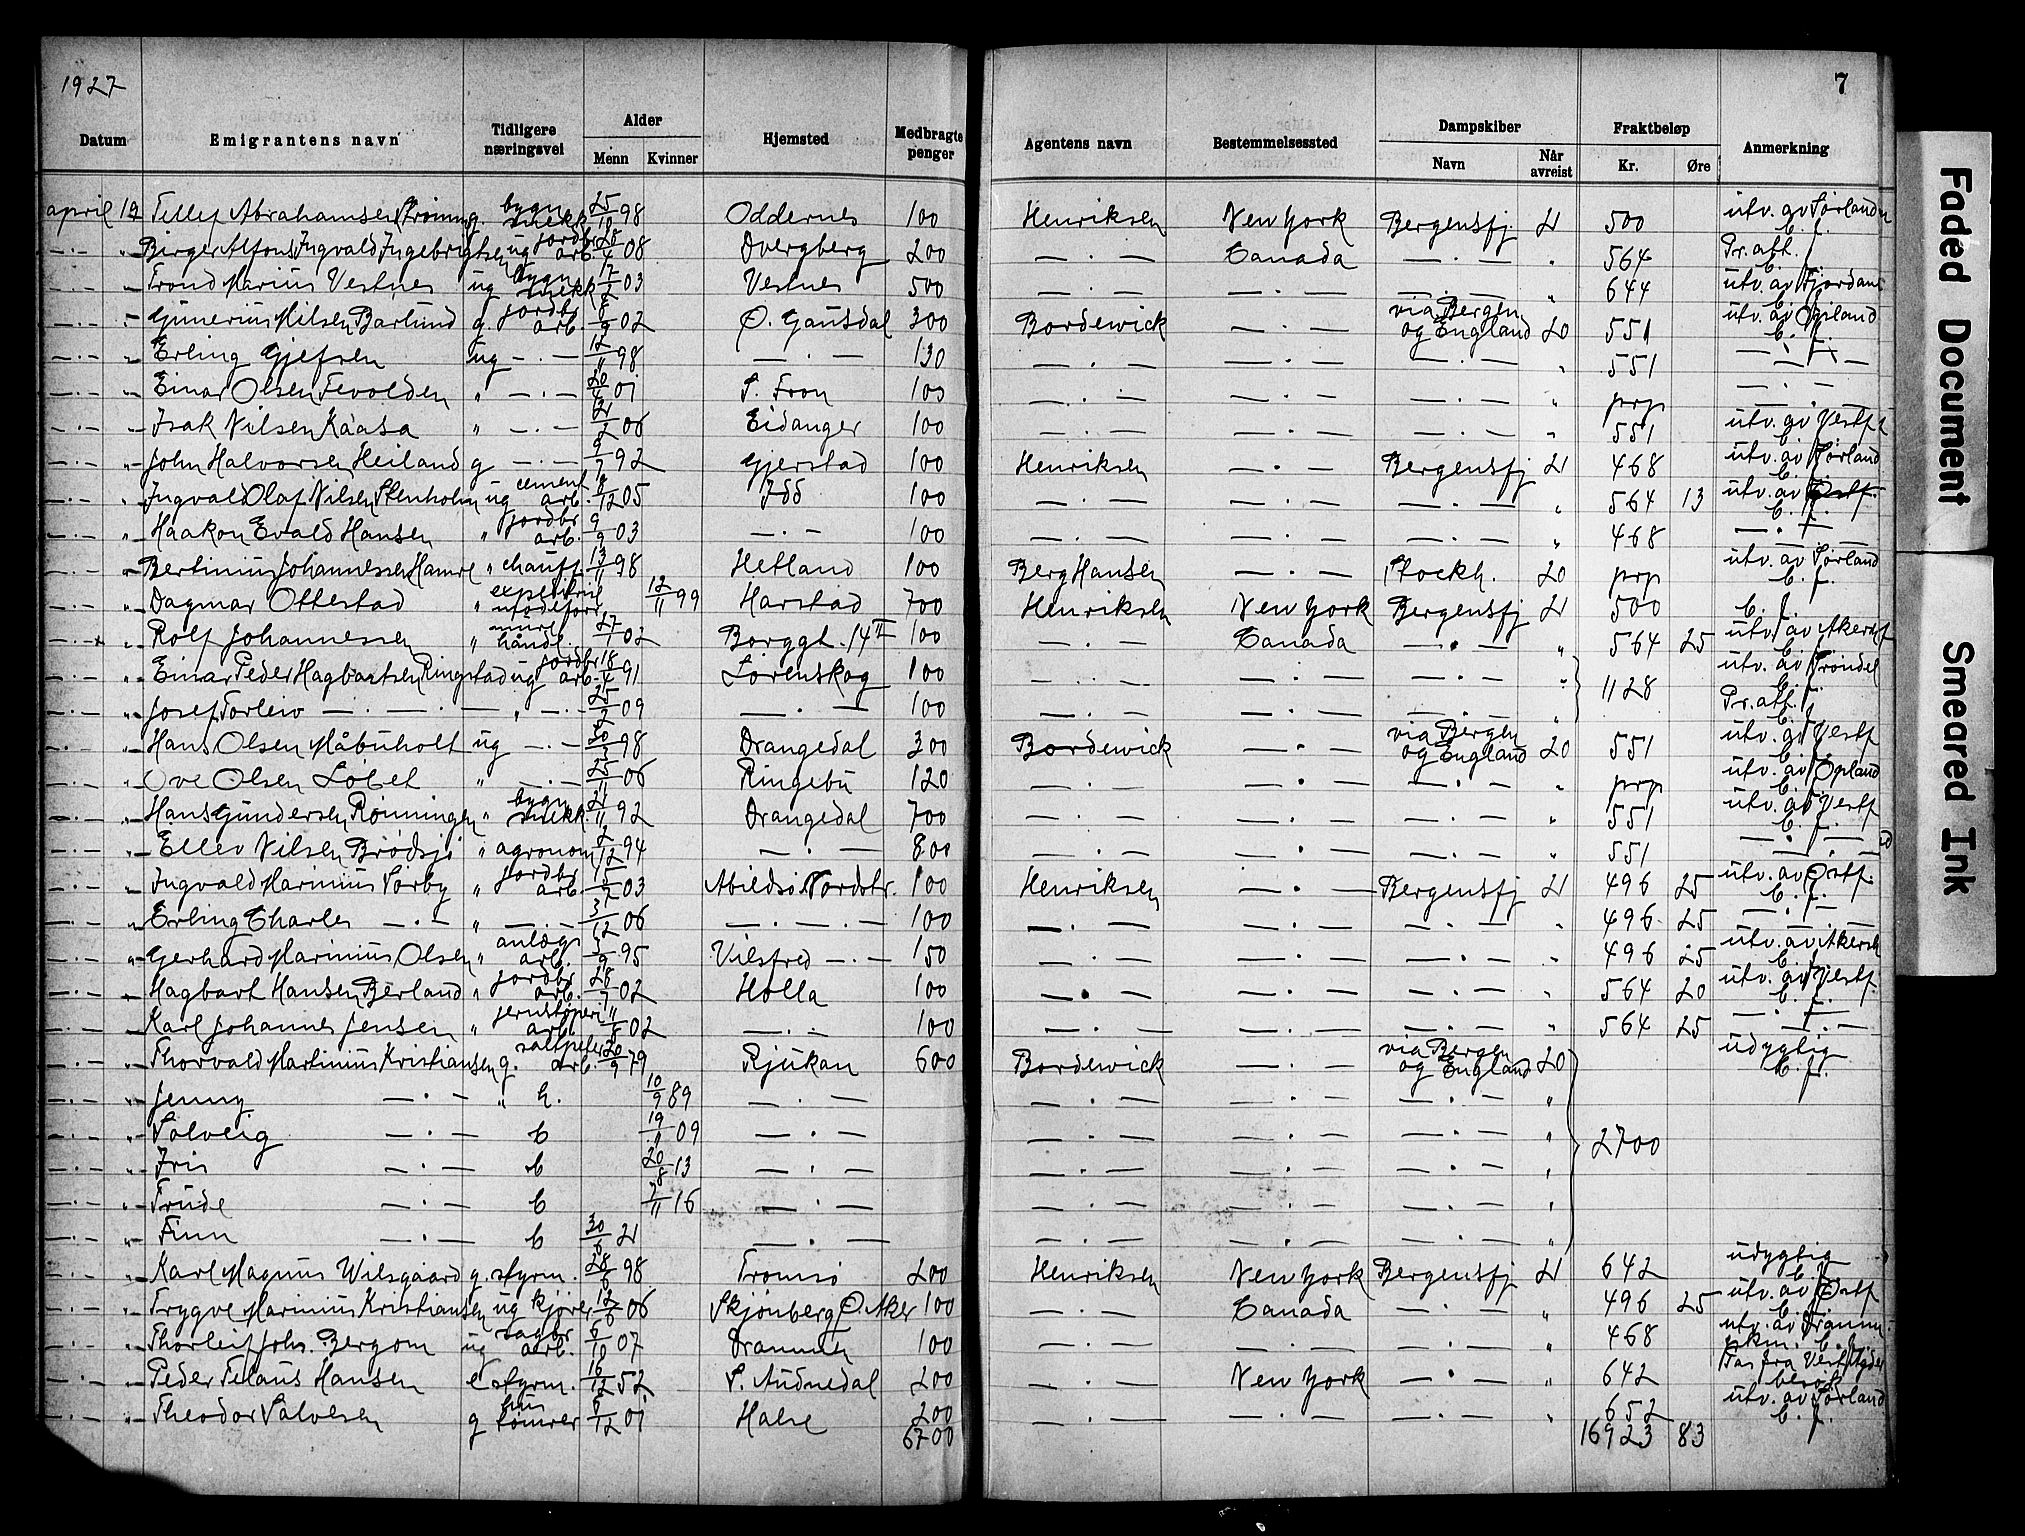 1927
7
Datum Emigrantens navn Tidligere næringsvei Alder Menn Kvinner Hjemsted Medbragte penger Agentens navn Bestemmelsessted Dampskiber Navn Når avreist Fraktbeløp Kr. Øre Anmerkning
april 19 Abrahamsen g. bygn. snekk. 25/10 98 Oddernes 100 Henriksen New York Bergensfj. 21 500 utv. av Sørland
— " Birger Alfons Ingvald Ingebrigtsen ug jordbr. arb. 08 Dvergberg 200 — . — Canada — . — " 564 Pr. att.
— " Trond Marius Vestnes ug bygn. snekk. 03 Vestnes 500 — . — — . — — . — " 644 utv. av Fjordane
— " Gunerius Nilsen Barlund g. jordbr. arb. 02 Ø. Gausdal 300 Bordewick — . — via Bergen og England 20 551 utv. av Opland
— " Erling Gjefsen ug — . — 12/11 98 — . — 130 — . — — . — " 551 — . —
— " Einar Olsen Tevolden " — . — 20/4 01 S. Fron 100 — . — — . — " prp — . —
— " Isak Nilsen Kaasa " — . — 06 Eidanger 100 — . — — . — " 551 utv. av Vestf.
— " John Halvorsen Heiland g — . — 9/7 92 Gjerstad 100 Henriksen — . — Bergensfj 21 468 utv. av Sørland
— " Ingvald Olaf Nilsen Stenholm ug cement arb. 05 Idd 100 — . — — . — — . — " 564 13 utv. av Østf.
— " Haakon Evald Hansen " jordbr. arb. 9/9 03 — . — 100 — . — — . — — . — " 468 — . —
— " Bertinius Johannessen Hamre " chauff. 13/11 98 Hetland 100 Berg Hansen — . — Stockh. 20 prp utv. av Sørland
— " Dagmar Ottestad " 12/11 99 Harstad 700 Henriksen New York Bergensfj 21 500 C. f.
— " Rolf Johannessen " håndl. 27/1 02 Borggt. 14 II 100 — . — Canada — . — " 564 25 utv. av Akersh.
— " Einar Peder Hagbartsen Ringstad ug jordbr. arb. 18/4 91 Lørenskog 100 — . — — . — — . — " 1128 utv. av Trøndel
— " Josef Torleiv — . — " — . — 25/2 09 — . — 100 — . — — . — — . — " Pr. att.
— " Hans Olsen Måbuholt ug — . — 98 Drangedal 300 Bordewick — . — via Bergen og England 20 551 utv. av Vestf
— " Ove Olsen Løbet " — . — 25/11 06 Ringebu 120 — . — — . — — . — " prp utv. av Opland
— " Hans Gundersen Rønningen " bygn. snekk. 21/11 92 Drangedal 700 — . — — . — — . — " 551 utv. av Vestf.
— " Ellev Nilsen Brødsjø " agronom 2/12 94 — . — 800 — . — — . — — . — " 551 — . —
— " Ingvald Marinius Sørby " jordbr. arb. 15/7 03 Abildsø Nordstr. 100 Henriksen — . — Bergensfj 21 496 25 utv. av Østf.
— " Erling Charles — . — " — . — 3/12 06 — . — 100 — . — — . — — . — " 496 25 — . —
— " Gerhard Marinius Olsen " anlegs arb. 95 Vilsfred — . — 150 — . — — . — — . — " 496 25 utv. av Akersh
— " Hagbart Hansen Berland " jordbr. arb. 28/7 02 Holla 100 — . — — . — — . — " 564 20 utv. av Vestf.
— " Karl Johannes Jensen " jernstøperi arb. 11/8 02 — . — 100 — . — — . — — . — " 564 25 — . —
— " Thorvald Martinius Kristiansen g. saltpeter arb. 20/9 79 Rjukan 600 Bordewick — . — via Bergen og England 20 udygtig C. f.
— " Jenny — . — " h. 10/9 89 — . — — . — — . — — . — "
— " Solveig — . — b 19/11 09 — . — — . — — . — — . — " 2700
— " Iris — . — b 20/8 13 — . — — . — — . — — . — "
— " Trude — . — b 7/11 16 — . — — . — — . — — . — "
— " Finn — . — b 30/6 21 — . — — . — — . — — . — "
— " Karl Magnus Wilsgaard g. styrm. 28/6 98 Tromsø 200 Henriksen New York Bergensfj 21 642 udygtig
— " Trygve Marinius Kristiansen ug kjører 12/6 06 Skjønberg Ø. Aker 100 — . — Canada — . — " 496 25 utv. av Østf
— " Thorleif Johs. Bergom ug sagbr. arb. 6/10 07 Drammen 100 — . — — . — — . — " 468 utv. av Dramm. pkm. C. f.
— " Peder Telaus Hansen e styrm. 16/12 52 S. Audnedal 200 — . — New York — . — " 642 besøk
— " Theodor Salvesen g hus tømrer 6/12 01 Halse 200 — . — — . — — . — " 652 utv. av Sørland C. f.
6700 16923 83
Faded Document
Smeared Ink